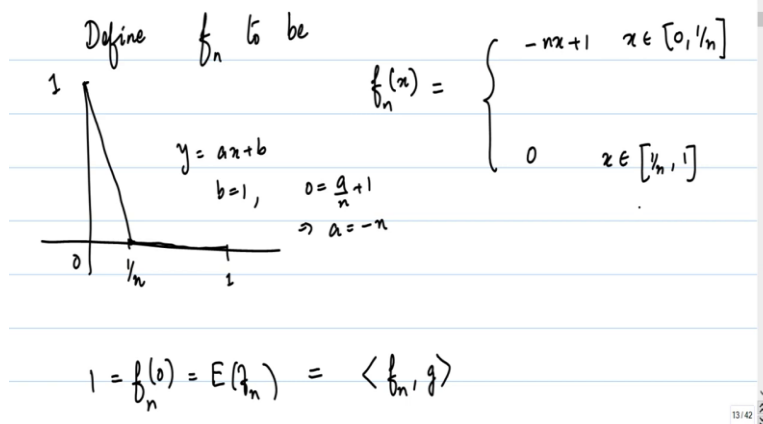 Define f_n to be
f_n(x) = { -nx+1 x ∈ [0, 1/n]
0 x ∈ [1/n, 1]
1
y = ax+b
b=1, 0 = a/n +1
⇒ a = -n
0 1/n 1
1 = f_n(0) = E(f_n) = <f_n, g>
13/42